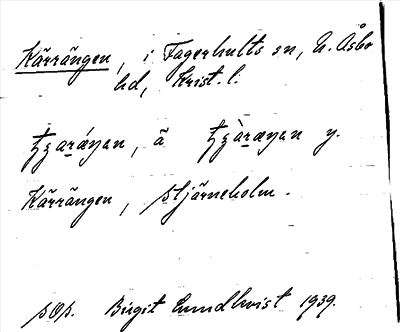 Kärrängen, i Fagerhults sn, N. Åsbo
hd, Krist. l.
ä y.
Kärrängen, Stjärneholm.
pop. Birgit Lundkvist 1939.